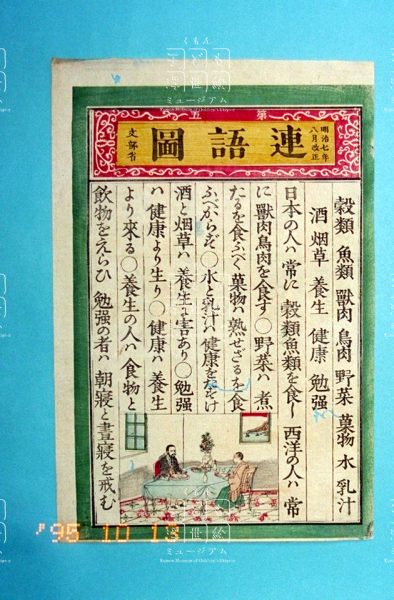 第五
連語圖
明治七年
八月改正
文部省
穀類 魚類 獸肉 鳥肉 野菜 菓物 水 乳汁
酒 烟草 養生 健康 勉强
日本の人ハ 常に 穀類魚類を食し 西洋の人ハ 常
に 獸肉鳥肉を食す〇野菜ハ 煮
たるを食ふべし 菓物ハ 熟せざるを食
ふべからず〇水と乳汁ハ 健康をたすけ
酒と烟草ハ 養生に害あり〇勉强
ハ 健康より生り〇健康ハ 養生
より來る〇養生の人ハ 食物と
飲物をえらひ 勉强の者ハ 朝寢と晝寢を戒む
'95 10 13
くもん
ミュージアム